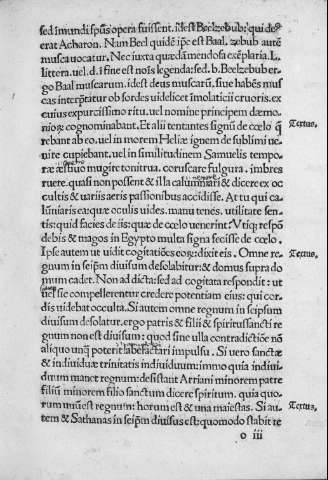 sed īmundi spūs opera fuissent. idest Beelzebub: qui de⸗
erat Acharon. Nam Beel quidē ipse est Baal. zebub autē
musca uocatur. Nec iuxta quædā mendosa exēplaria. L.
littera. uel. d. ī fine est noīs legenda: sed. b. Beelzebub er
go Baal muscarum. idest deus muscarū, siue habēs mus
cas interpretatur ob sordes uidelicet īmolaticii cruoris. ex
cuius expurcissimo ritu. uel nomine principem dæmo⸗
nioꝝ cognominabant. Et alii tentantes signū de cœlo q̄
rebant ab eo. uel in morem Heliæ ignem de sublimi ue⸗
nire cupiebant. uel in similitudinem Samuelis tempo⸗
ræ æstiuo mugire tonitrua. coruscare fulgura. imbres
ruere. quasi non possent & illa calumniari & dicere ex oc
cultis & uariis aeris passionibus accidisse. At tu qui ca⸗
lūniaris ea: quæ oculis uides. manu tenes. utilitate sen⸗
tis: quid facies de iis: quæ de cœlo uenerint? Vtiq; respō
debis & magos in Egypto multa signa fecisse de cœlo.
Ipse autem ut uidit cogitatiōes eoꝝ: dixit eis. Omne re⸗
gnum in seipm̄ diuisum desolabitur: & domus supra do
mum cadet. Non ad dicta: sed ad cogitata respondit: ut
uel sic compellerentur credere potentiam eius: qui cor⸗
dis uidebat occulta. Si autem omne regnum in seipsum
diuisum desolatur. ergo patris & filii & spiritussancti re
gnum non est diuisum: quod sine ulla contradictiōe nō
aliquo unq̄ poterit labefactari impulsu. Si uero sanctæ
& indiuiduæ trinitatis indiuiduum: immo quia indiui⸗
duum manet regnum: desistant Arriani minorem patre
filiū minorem filio sanctum dicere spiritum. quia quo⸗
rum unū est regnum: horum est & una maiestas. Si au⸗
tem & Sathanas in seipm̄ diuisus est: quomodo stabit re
o iii
Textus.
Textus.
Textus.